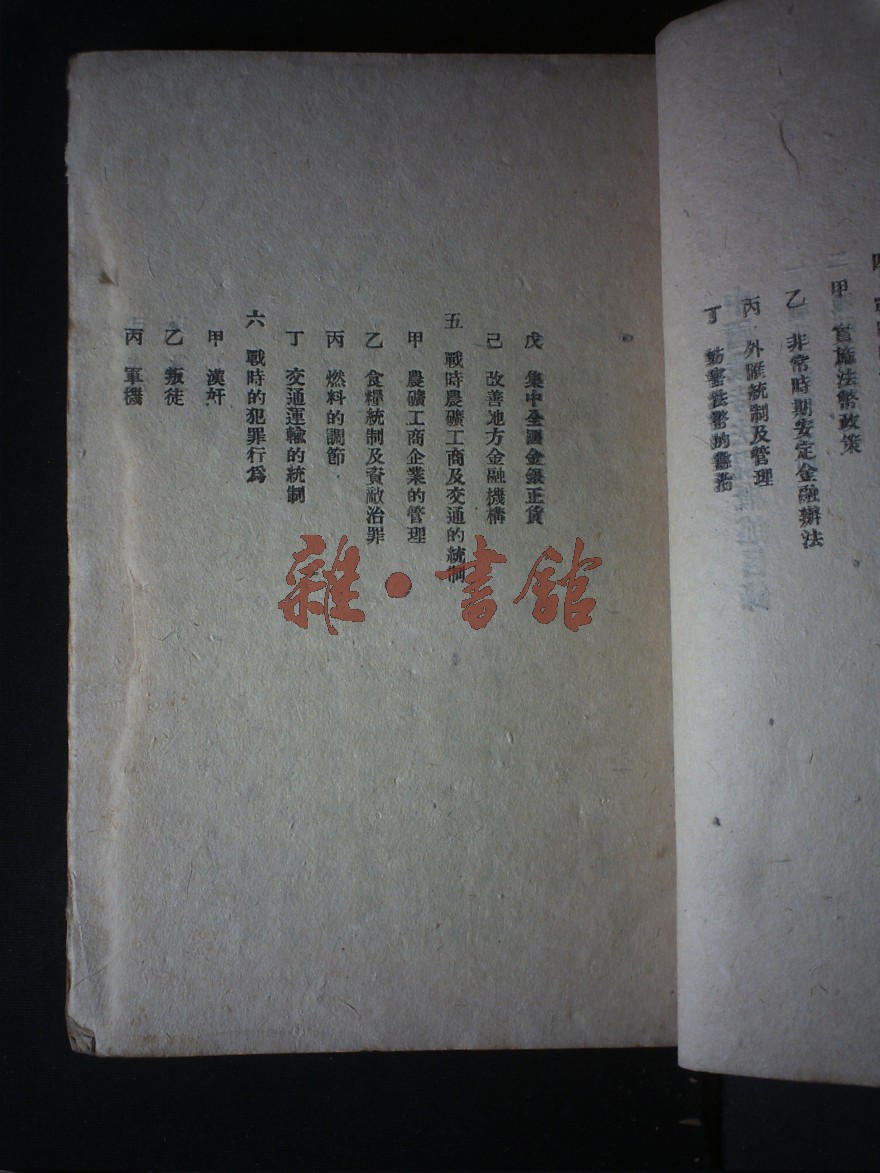 甲 實施法幣政策
乙 非常時期安定金融辦法
丙 外匯統制及管理
丁 妨害法幣的懲治
戊 集中全國金銀正貨
己 改善地方金融機構
五 戰時農礦工商及交通的統制
甲 農礦工商企業的管理
乙 食糧統制及資敵治罪
丙 燃料的調節
丁 交通運輸的統制
六 戰時的犯罪行爲
甲 漢奸
乙 叛徒
丙 軍機
雜·書館